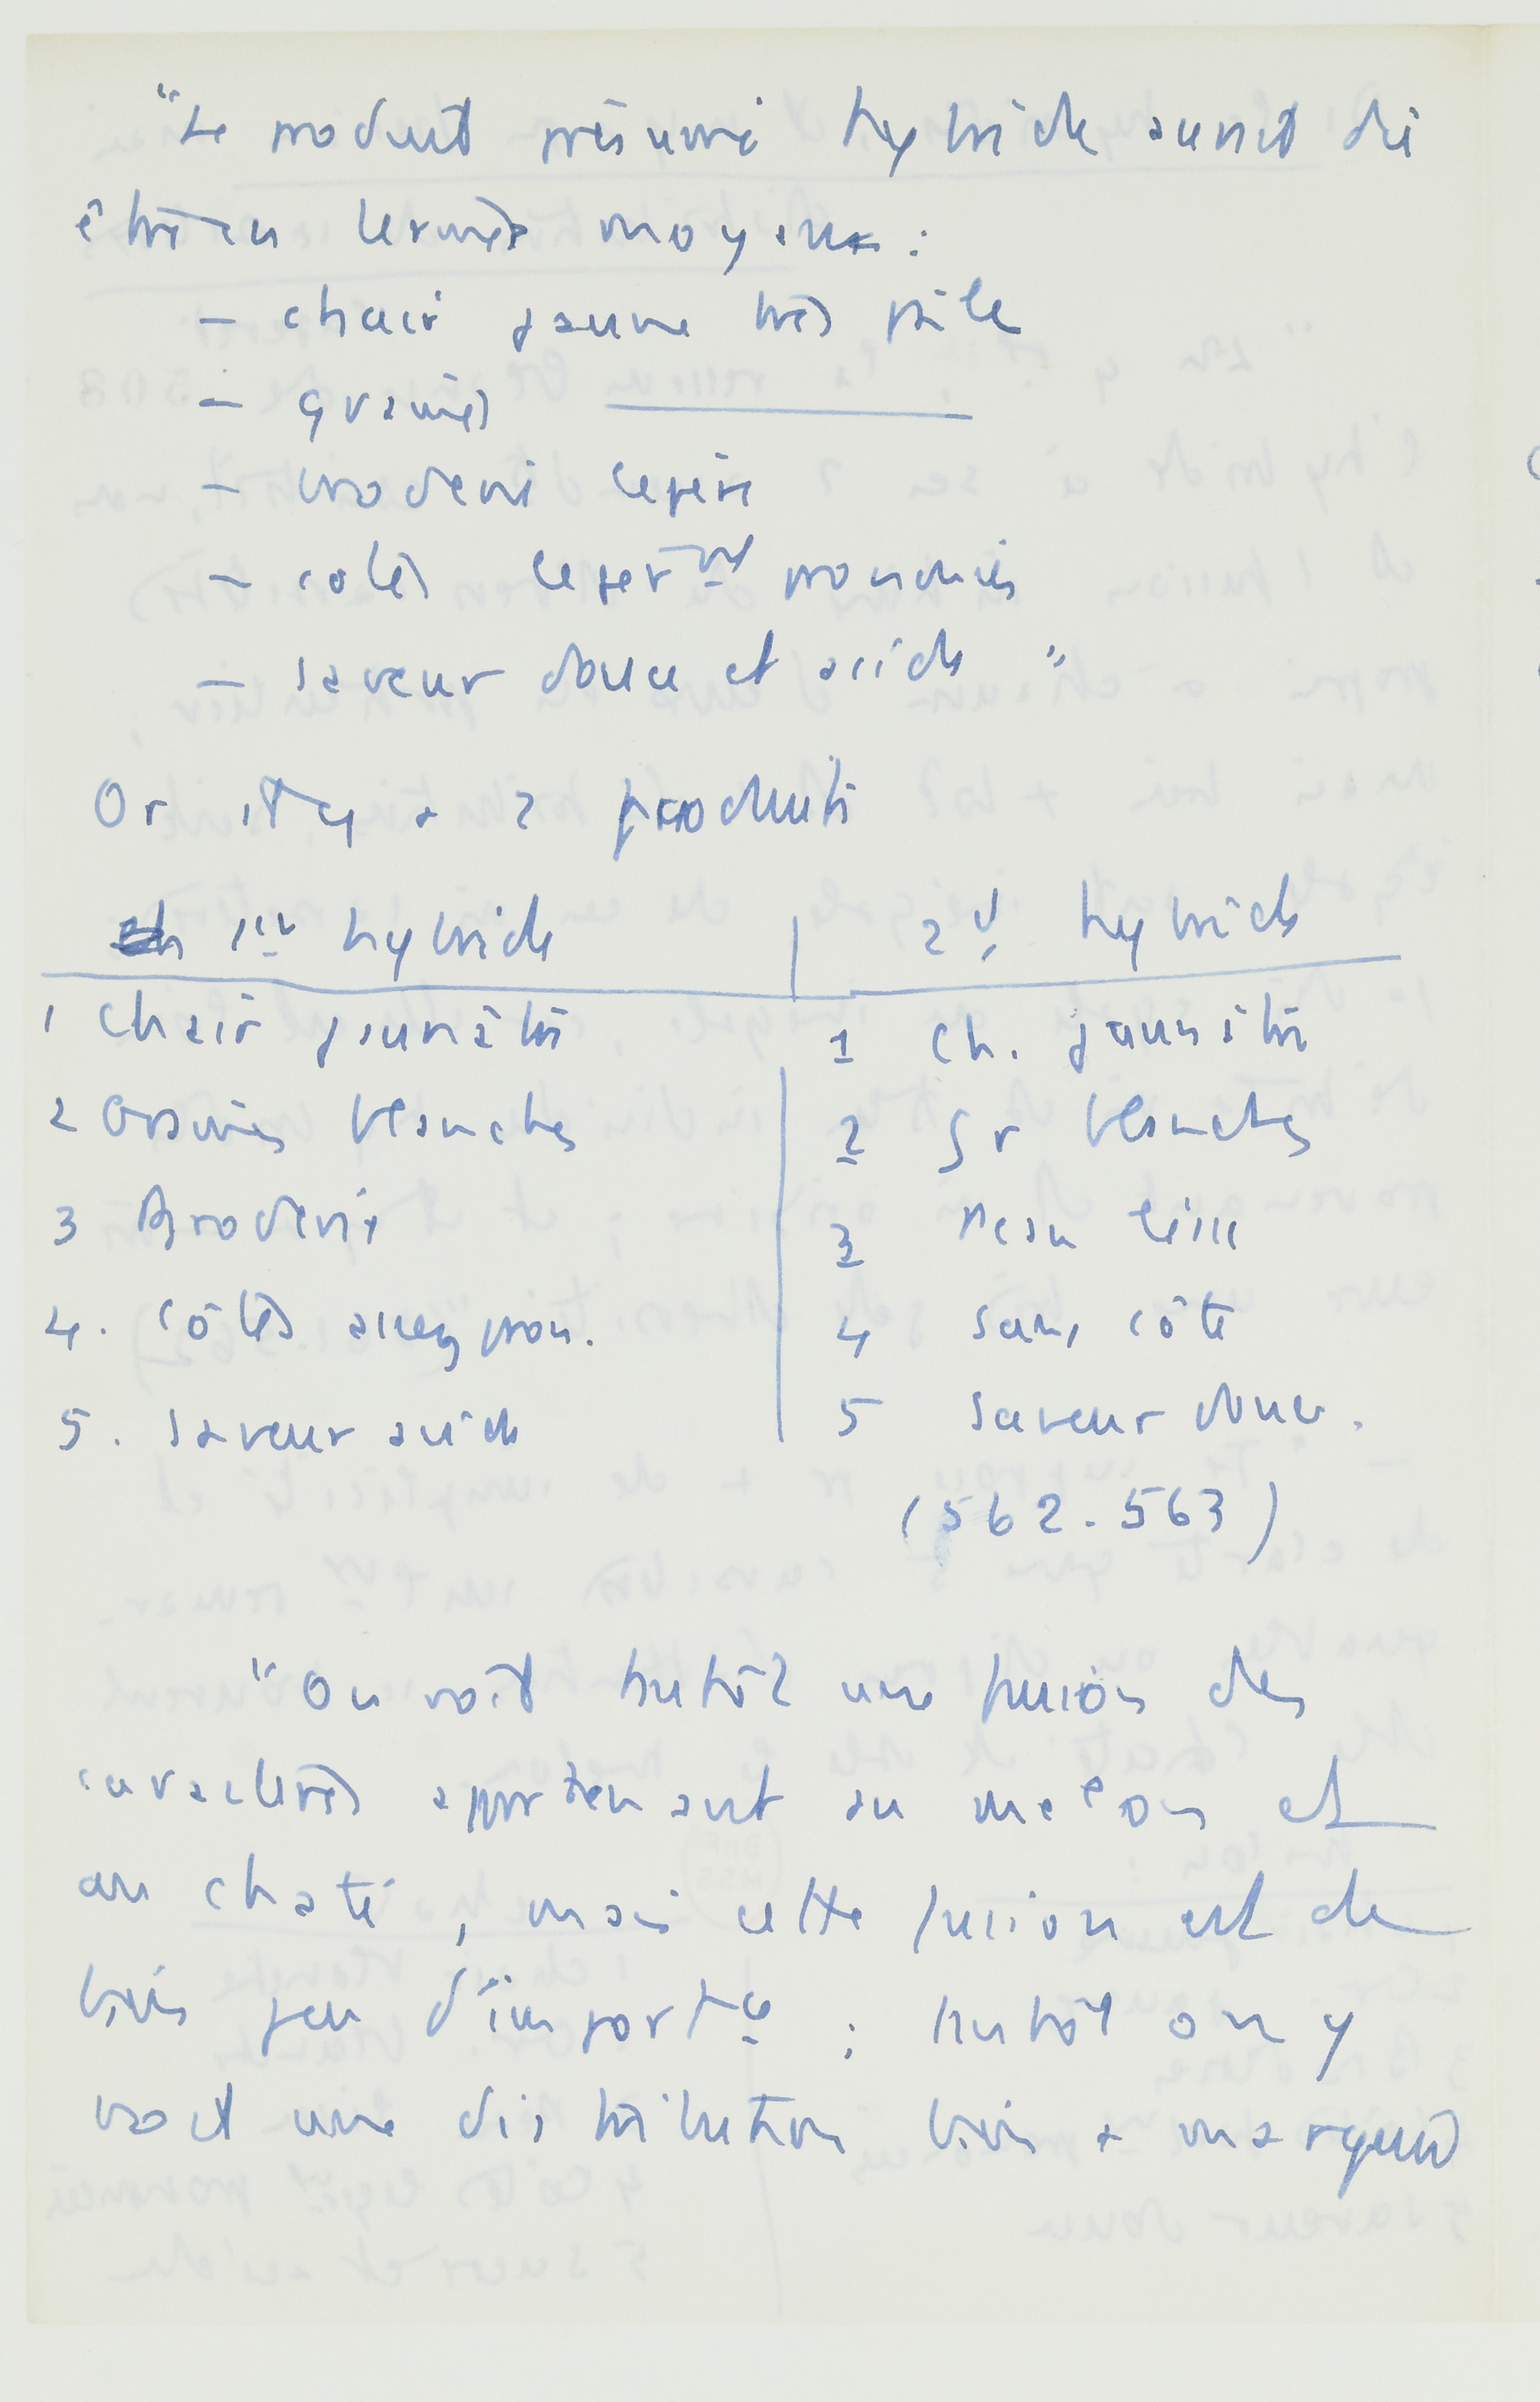 "Le produit présumé hybride aurait dû
être en termes moyens :
– chair jaune très pâle
– graines ______
– broderie légère
– côtes légèrᵗ prononcées
– saveur douce et acide "
Or il y a 2 produits
1er hybride | 2d hybride
1 Chair jaunâtre | 1 Ch. jaunâtre
2 Graines blanches | 2 Gr blanches
3 Broderie | 3 Peau lisse
4. Côtes assez pron. | 4 Sans côte
5. Saveur acide | 5 Saveur douce.
(562-563)
"On voit plutôt une fusion des
caractères appartenant au melon et
au chaté, mais cette fusion est de
bien peu d'importce ; plutôt on y
voit une distribution bien + marquée